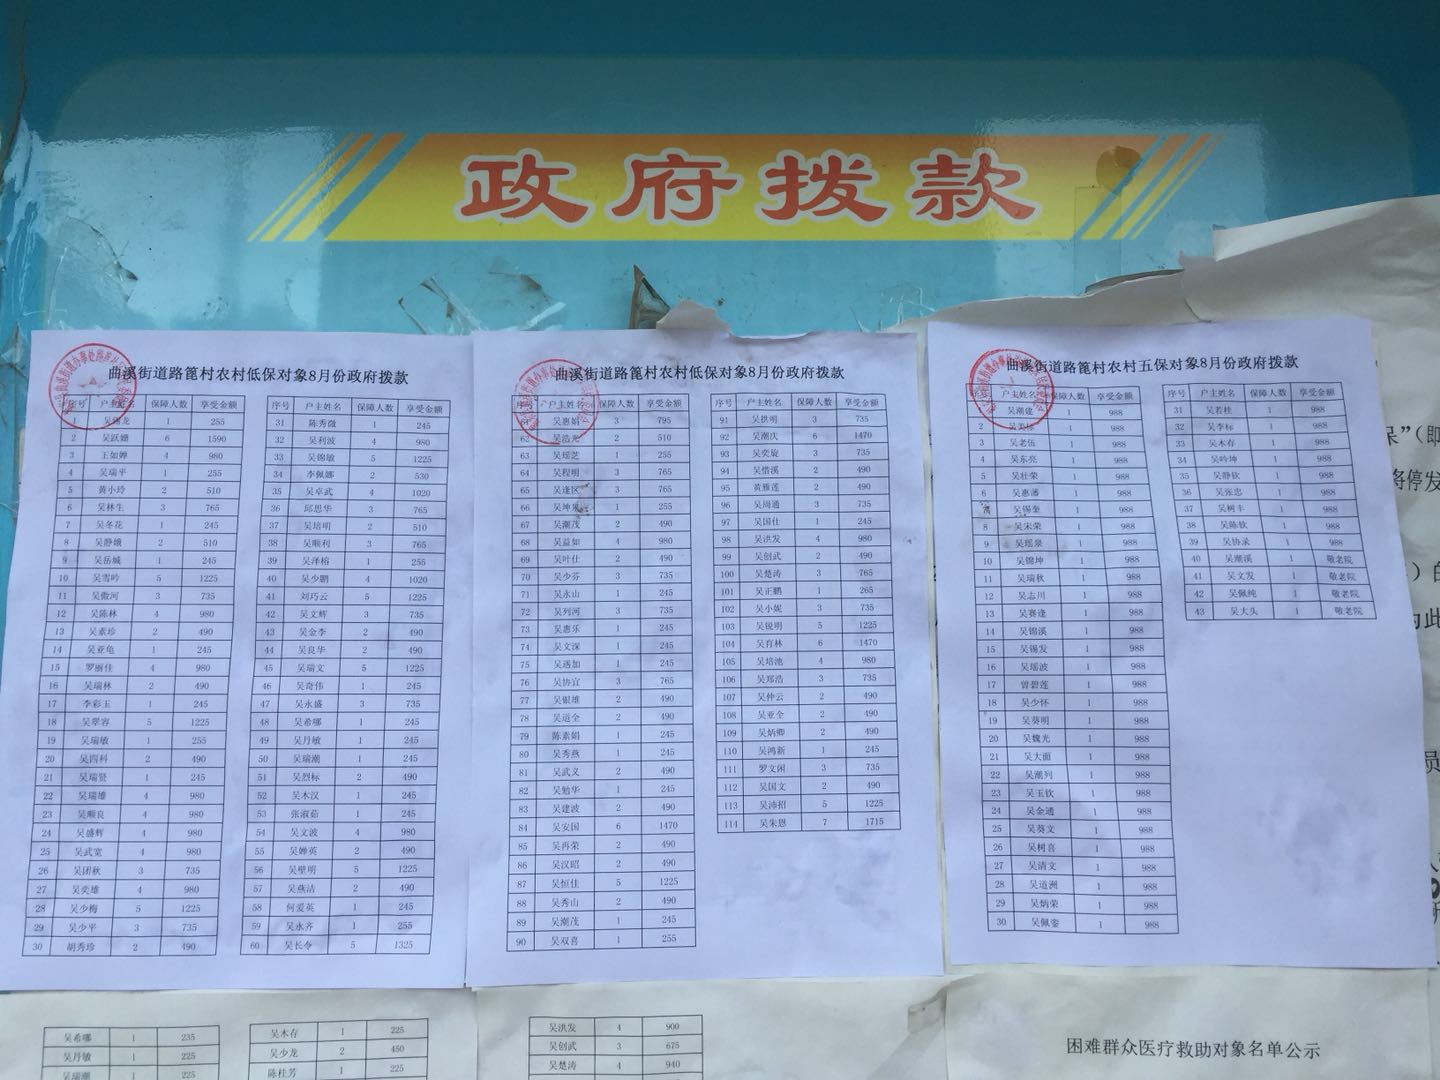 政府拨款
曲溪街道路篦村农村低保对象8月份政府拨款
序号 户主姓名 保障人数 享受金额
1 1 255
2 吴跃姗 6 1590
3 王如婵 4 980
4 吴瑞平 1 255
5 黄小玲 2 510
6 吴林生 3 765
7 吴冬花 1 245
8 吴静娥 2 510
9 吴岳城 1 245
10 吴雪吟 5 1225
11 吴傲河 3 735
12 吴陈林 4 980
13 吴素珍 2 490
14 吴亚龟 1 245
15 罗丽佳 4 980
16 吴瑞林 2 490
17 李彩玉 1 245
18 吴翠容 5 1225
19 吴瑞敏 1 255
20 吴四科 2 490
21 吴瑞贤 1 245
22 吴瑞雄 4 980
23 吴顺良 4 980
24 吴盛辉 4 980
25 吴武宽 4 980
26 吴团秋 3 735
27 吴奕雄 4 980
28 吴少梅 5 1225
29 吴少平 3 735
30 胡秀珍 2 490
序号 户主姓名 保障人数 享受金额
31 陈秀微 1 245
32 吴利波 4 980
33 吴锦敏 5 1225
34 李佩娜 2 530
35 吴卓武 4 1020
36 邱思华 3 765
37 吴培明 2 510
38 吴顺利 3 765
39 吴泽榕 1 255
40 吴少鹏 4 1020
41 刘巧云 5 1225
42 吴文辉 3 735
43 吴金李 2 490
44 吴良华 2 490
45 吴瑞文 5 1225
46 吴奇伟 1 245
47 吴永盛 3 735
48 吴希哪 1 245
49 吴丹敏 1 245
50 吴瑞潮 1 245
51 吴烈标 2 490
52 吴木汉 1 245
53 张淑茹 1 245
54 吴文波 4 980
55 吴婵英 2 490
56 吴壁明 5 1225
57 吴燕洁 2 490
58 何爱英 1 245
59 吴永齐 1 255
60 吴长令 5 1325
曲溪街道路篦村农村低保对象8月份政府拨款
户主姓名 保障人数 享受金额
吴惠娟 3 795
62 吴浩光 2 510
63 吴瑶芝 1 255
64 吴程明 3 765
65 吴逢 3 765
66 吴坤 1 255
67 吴潮茂 2 490
68 吴益如 4 980
69 吴叶仕 2 490
70 吴少芬 3 735
71 吴永山 1 245
72 吴列河 3 735
73 吴惠乐 1 245
74 吴文深 1 245
75 吴遇加 1 245
76 吴协宜 3 765
77 吴银雄 2 490
78 吴运全 2 490
79 陈素娟 1 245
80 吴秀燕 1 245
81 吴武义 2 490
82 吴勉华 1 245
83 吴建波 2 490
84 吴安国 6 1470
85 吴再荣 2 490
86 吴汉昭 2 490
87 吴恒佳 5 1225
88 吴秀山 2 490
89 吴潮茂 1 245
90 吴双喜 1 255
序号 户主姓名 保障人数 享受金额
91 吴拱明 3 735
92 吴潮庆 6 1470
93 吴奕旋 3 735
94 吴惜溪 2 490
95 黄雁莲 2 490
96 吴周通 3 735
97 吴国仕 1 245
98 吴洪发 4 980
99 吴创武 2 490
100 吴楚涛 3 765
101 吴正鹏 1 265
102 吴小妮 3 735
103 吴锐明 5 1225
104 吴育林 6 1470
105 吴培池 4 980
106 吴郑浩 3 735
107 吴仲云 2 490
108 吴亚全 2 490
109 吴炳卿 2 490
110 吴鸿新 1 245
111 罗文闲 3 735
112 吴国文 2 490
113 吴沛招 5 1225
114 吴朱恩 7 1715
曲溪街道路篦村农村五保对象8月份政府拨款
户主姓名 保障人数 享受金额
吴潮建 1 988
2 吴美标 1 988
3 吴老伍 1 988
4 吴东亮 1 988
5 吴壮荣 1 988
6 吴惠藩 1 988
吴锡奎 1 988
8 吴宋荣 1 988
9 吴瑶泉 1 988
10 吴锦坤 1 988
11 吴瑞秋 1 988
12 吴志川 1 988
13 吴赛逢 1 988
14 吴锦溪 1 988
15 吴锡发 1 988
16 吴瑶波 1 988
17 曾碧莲 1 988
18 吴少怀 1 988
19 吴葵明 1 988
20 吴魏光 1 988
21 吴大面 1 988
22 吴潮列 1 988
23 吴玉钦 1 988
24 吴金通 1 988
25 吴葵文 1 988
26 吴树喜 1 988
27 吴清文 1 988
28 吴道洲 1 988
29 吴炳荣 1 988
30 吴佩銮 1 988
序号 户主姓名 保障人数 享受金额
31 吴若桂 1 988
32 吴李标 1 988
33 吴木存 1 988
34 吴吟坤 1 988
35 吴静钦 1 988
36 吴张忠 1 988
37 吴树丰 1 988
38 吴陈钦 1 988
39 吴协录 1 988
40 吴潮溪 1 敬老院
41 吴文发 1 敬老院
42 吴佩纯 1 敬老院
43 吴大头 1 敬老院
保”(即
将停发
)的
为此
员
吴希哪 1 235
吴丹敏 1 225
吴瑞潮 1 225
吴木存 1 225
吴少龙 2 450
陈桂芳 1 225
吴洪发 4 900
吴创武 3 675
吴楚涛 4 940
困难群众医疗救助对象名单公示